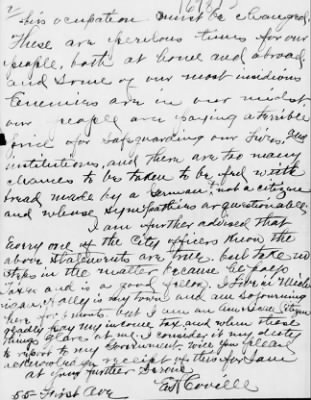 2
his ocupation must be changed.
These are perilous times for our
people, both at home and abroad.
and some of our most insidious
Enemies are in our midst.
our people are paying a terrible
price for safeguarding our lives, and
institutions, and there are too many
chances to be taken to be fed with
bread made by a German, not a citizen
and whose sympathies are questionable.
I am further advised that
Every one of the City officers know the
above statements are true. but take no
steps in the matter because he pays
Taxes and is a good fellow. I live in Mich
igan, is my town and am sojourning
here for months. but I am an American Citizen
gladly pay my income tax and when these
things glare at me I consider it my duty
to report to my Government. Will you please
acknowledge receipt of this for I am
at your further Service
E. Coville
55- First Ave